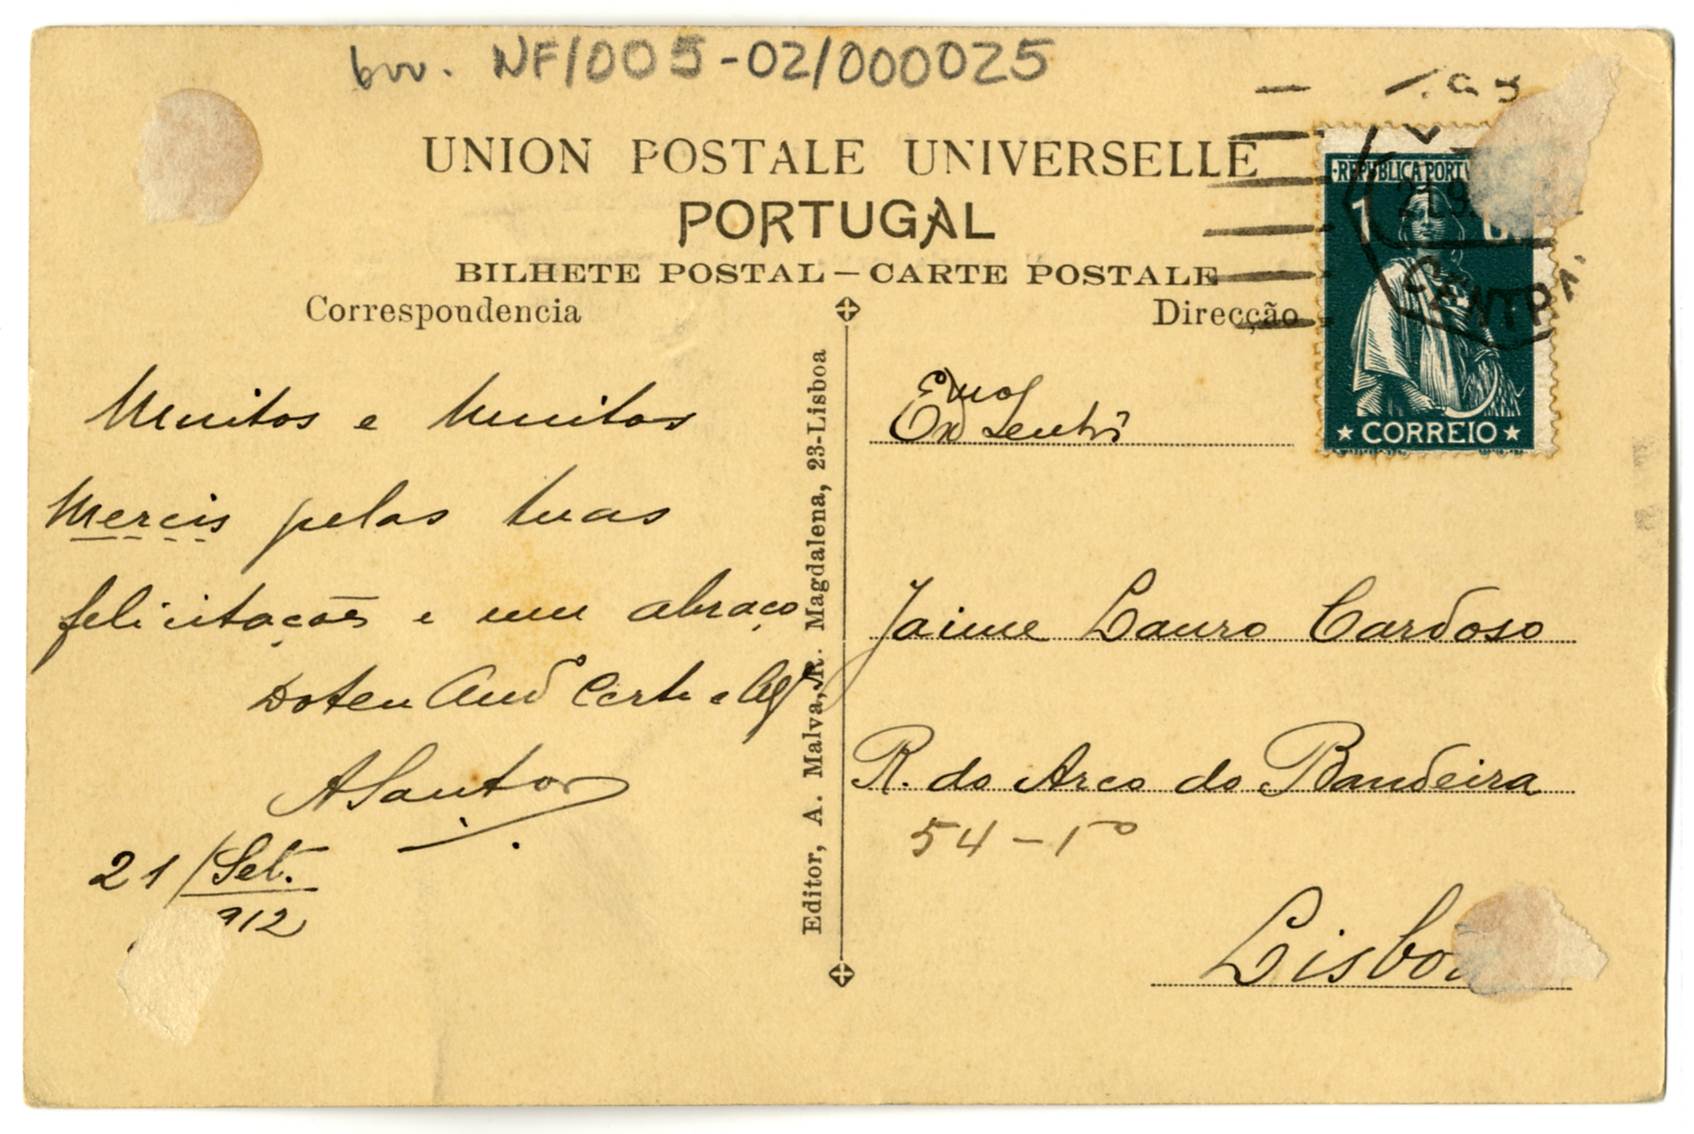 NF/005-02/000025
UNION POSTALE UNIVERSELLE
PORTUGAL
BILHETE POSTAL — CARTE POSTALE
Correspondencia
Direcção
REPUBLICA PORTU
1
CORREIO
21.9
CENTRA
Muitos e muitos
Mercis pelas tuas
felicitações e um abraço
ASantos
21/Set.
912
Editor, A. Malva, R. Magdalena, 23-Lisboa
Exmo
Jaime Lauro Cardoso
R. do Arco do Bandeira
54-1º
Lisboa